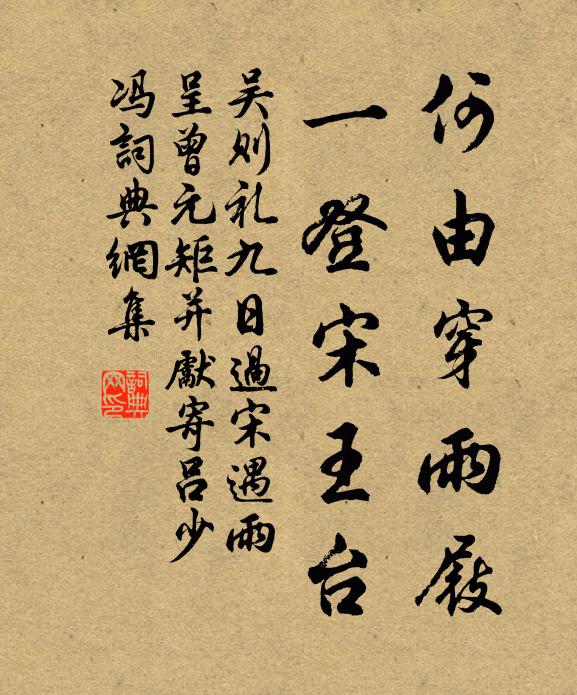 何由穿雨屐
一登宋王台
吴则礼九日過宋遇雨
呈曾元矩并獻寄吕少
冯詞典網集
詞典
网印